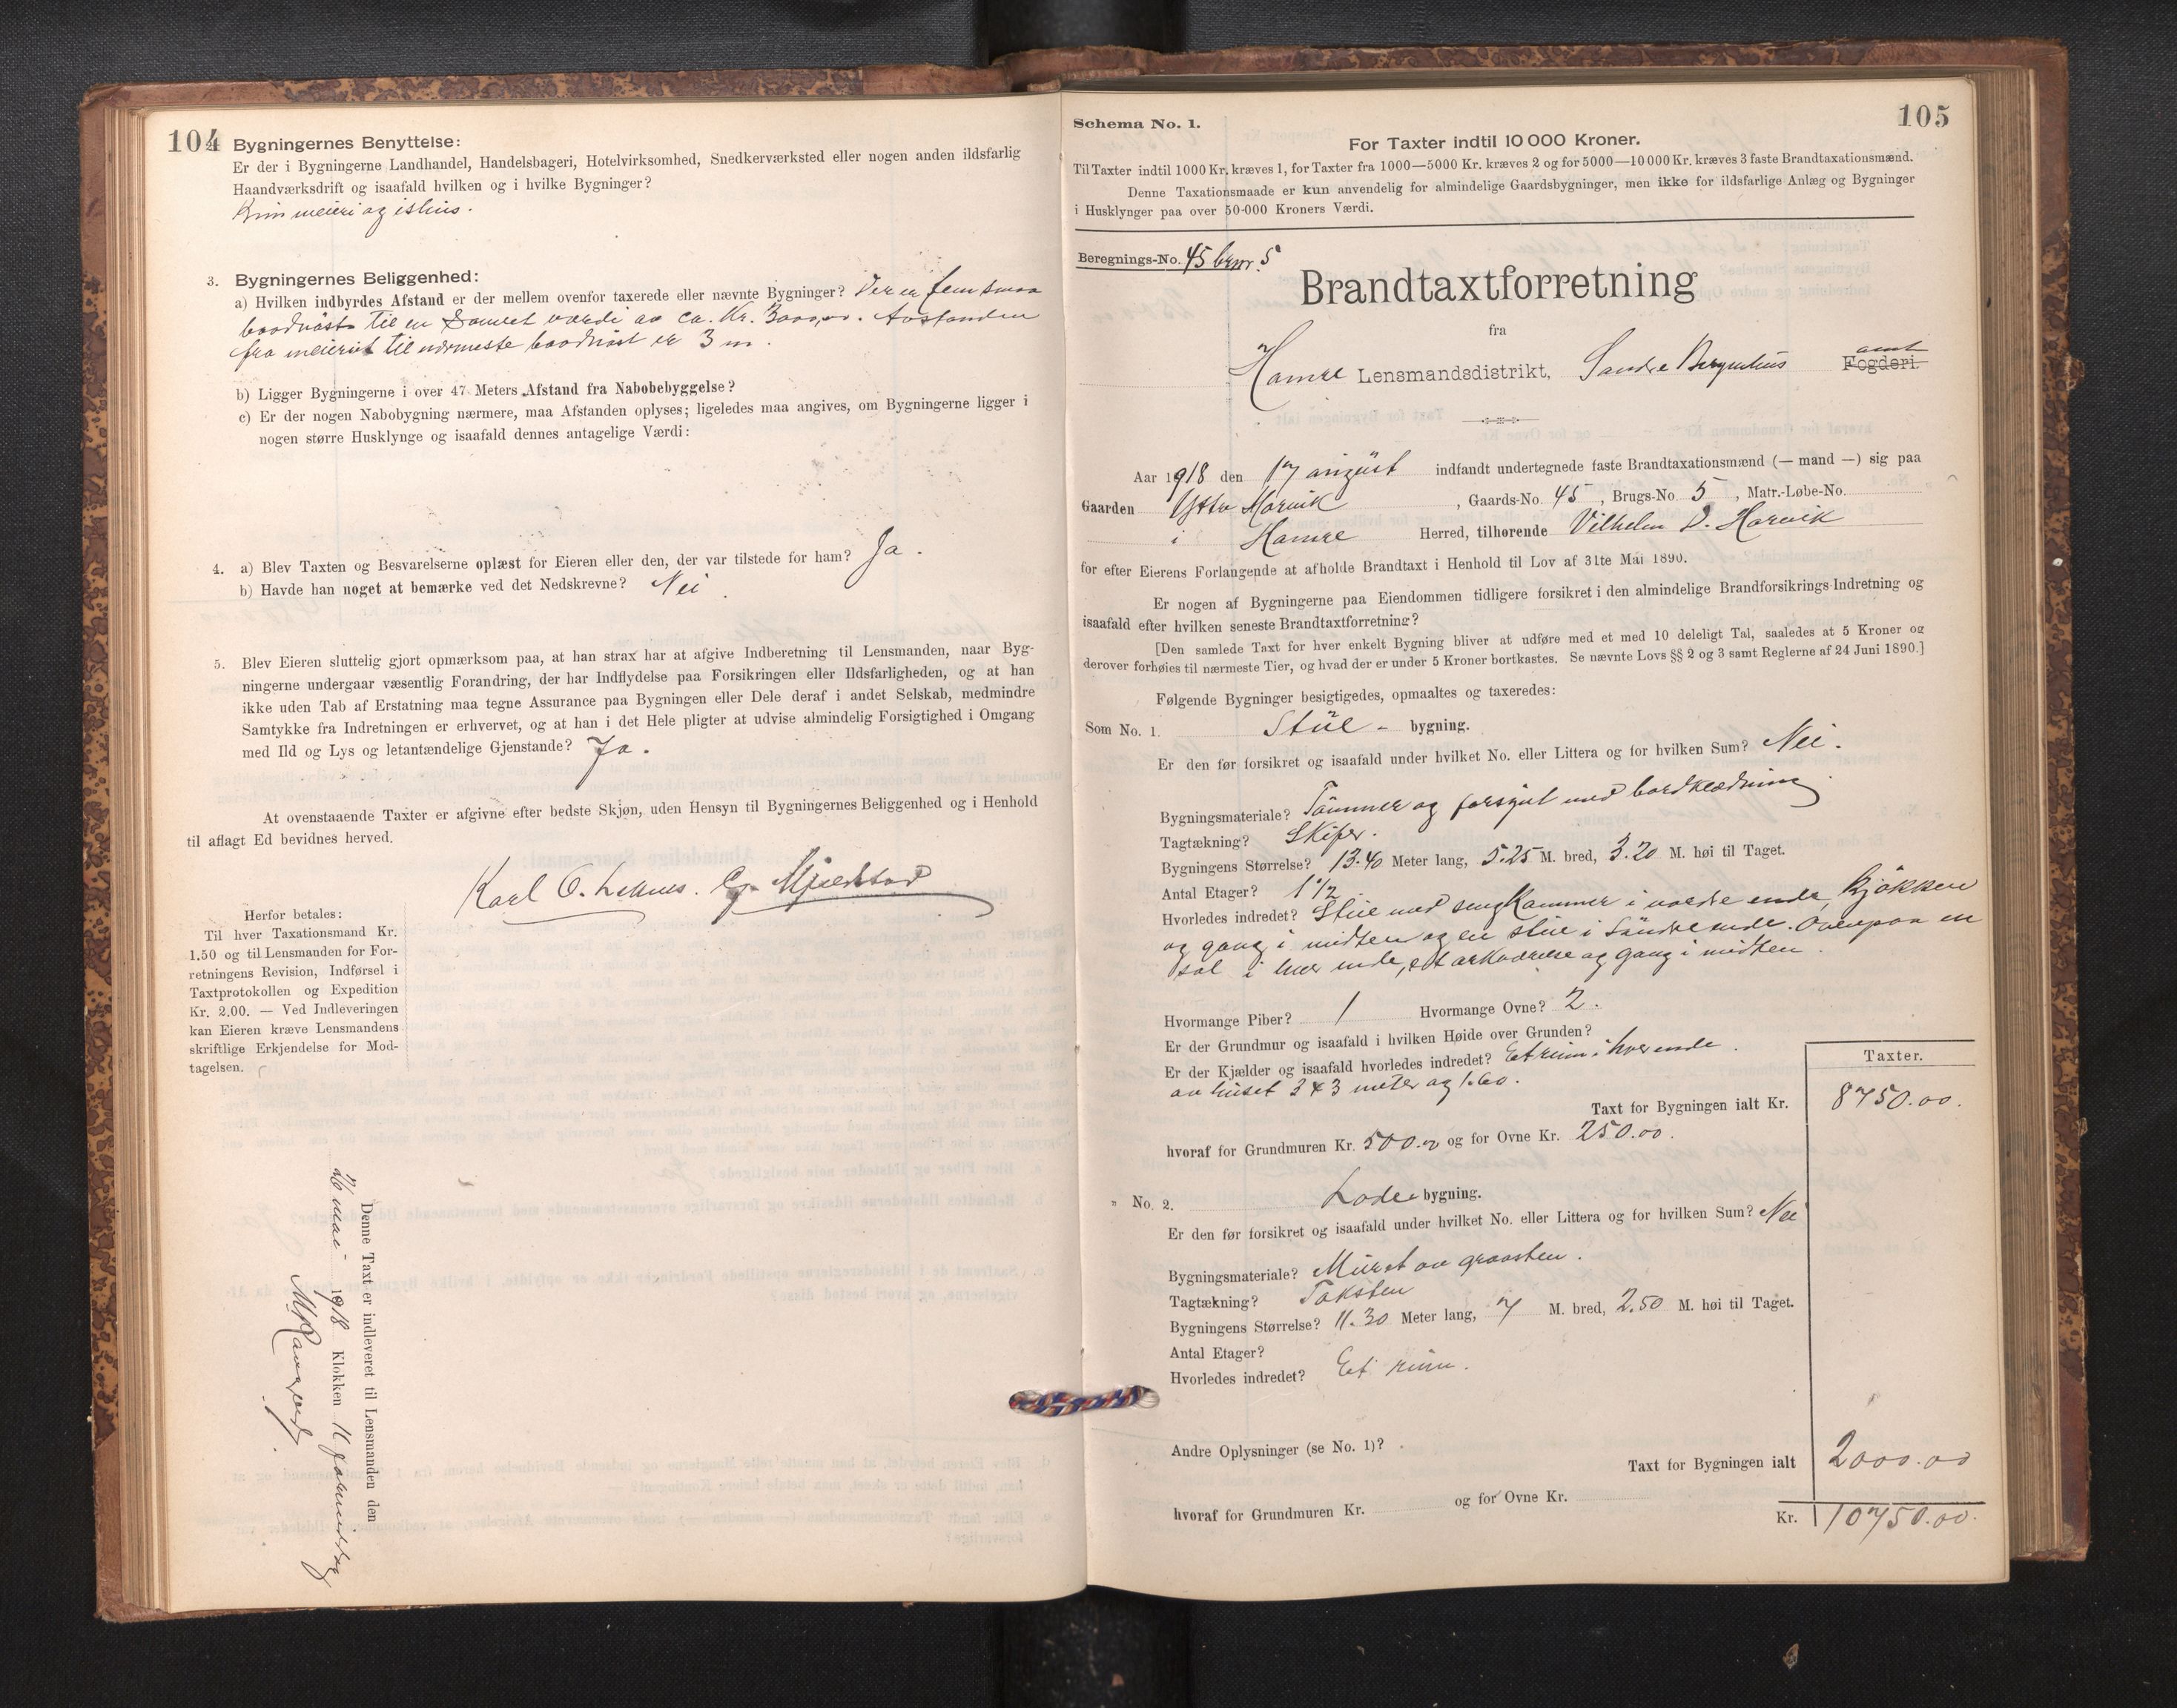 104
Bygningernes Benyttelse:
Er der i Bygningerne Landhandel, Handelsbageri, Hotelvirksomhed, Snedkerværksted eller nogen anden ildsfarlig
Haandværksdrift og isaafald hvilken og i hvilke Bygninger?
Kun meieri og ishus.
3. Bygningernes Beliggenhed:
a) Hvilken indbyrdes Afstand er der mellem ovenfor taxerede eller nævnte Bygninger? Der er fem smaa
baadnöst til en samlet værdi av ca. Kr. 3000,00. Avstanden
fra meieriet til nærmeste baadnöst er 3 m.
b) Ligger Bygningerne i over 47 Meters Afstand fra Nabobebyggelse?
c) Er der nogen Nabobygning nærmere, maa Afstanden oplyses; ligeledes maa angives, om Bygningerne ligger i
nogen større Husklynge og isaafald dennes antagelige Værdi:
4. a) Blev Taxten og Besvarelserne oplæst for Eieren eller den, der var tilstede for ham? Ja.
b) Havde han noget at bemærke ved det Nedskrevne? Nei.
5. Blev Eieren sluttelig gjort opmærksom paa, at han strax har at afgive Indberetning til Lensmanden, naar Byg-
ningerne undergaar væsentlig Forandring, der har Indflydelse paa Forsikringen eller Ildsfarligheden, og at han
ikke uden Tab af Erstatning maa tegne Assurance paa Bygningen eller Dele deraf i andet Selskab, medmindre
Samtykke fra Indretningen er erhvervet, og at han i det Hele pligter at udvise almindelig Forsigtighed i Omgang
med Ild og Lys og letantændelige Gjenstande? Ja.
At ovenstaaende Taxter er afgivne efter bedste Skjøn, uden Hensyn til Bygningernes Beliggenhed og i Henhold
til aflagt Ed bevidnes herved.
Karl O.
Herfor betales:
Til hver Taxationsmand Kr.
1.50 og til Lensmanden for For-
retningens Revision, Indførsel i
Taxtprotokollen og Expedition
Kr. 2.00. — Ved Indleveringen
kan Eieren kræve Lensmandens
skriftlige Erkjendelse for Mod-
tagelsen.
Denne Taxt er indleveret til Lensmanden den
mai 1918 Klokken 11 formiddag
105
Schema No. 1.
For Taxter indtil 10 000 Kroner.
Til Taxter indtil 1000 Kr. kræves 1, for Taxter fra 1000—5000 Kr. kræves 2 og for 5000—10 000 Kr. kræves 3 faste Brandtaxationsmænd.
Denne Taxationsmaade er kun anvendelig for almindelige Gaardsbygninger, men ikke for ildsfarlige Anlæg og Bygninger
i Husklynger paa over 50-000 Kroners Værdi.
Beregnings-No. 45 brnr. 5
Brandtaxtforretning
fra
amt
Hamre Lensmandsdistrikt, Søndre Bergenhus Fogderi
Aar 1918 den 17 august indfandt undertegnede faste Brandtaxationsmænd (— mand —) sig paa
Gaarden Ytre Horvik, Gaards-No. 45, Brugs-No. 5, Matr.-Løbe-No.
i Hamre Herred, tilhørende Vilhelm D. Horvik
for efter Eierens Forlangende at afholde Brandtaxt i Henhold til Lov af 31te Mai 1890.
Er nogen af Bygningerne paa Eiendommen tidligere forsikret i den almindelige Brandforsikrings-Indretning og
isaafald efter hvilken seneste Brandtaxtforretning?
[Den samlede Taxt for hver enkelt Bygning bliver at udføre med et med 10 deleligt Tal, saaledes at 5 Kroner og
derover forhøies til nærmeste Tier, og hvad der er under 5 Kroner bortkastes. Se nævnte Lovs §§ 2 og 3 samt Reglerne af 24 Juni 1890.]
Følgende Bygninger besigtigedes, opmaaltes og taxeredes:
Som No. 1. Stue - bygning.
Er den før forsikret og isaafald under hvilket No. eller Littera og for hvilken Sum? Nei.
Bygningsmateriale? Tömmer og forsynt med bordklædning
Tagtækning? Skifer.
Bygningens Størrelse? 13.40 Meter lang, 5.25 M. bred, 3.20 M. høi til Taget.
Antal Etager? 1 1/2
Hvorledes indredet? Stue med sengkammer i nordre ende, Kjökken
og gang i midten og en stue i söndre ende. Ovenpaa en
sal i hver ende, et arkværelse og gang i midten
Hvormange Piber? 1 Hvormange Ovne? 2.
Er der Grundmur og isaafald i hvilken Høide over Grunden?
Er der Kjælder og isaafald hvorledes indredet? Et rum i hver ende
av huset 3 x 3 meter og 1.60.
Taxter.
Taxt for Bygningen ialt Kr. 8750.00.
hvoraf for Grundmuren Kr. 500.00 og for Ovne Kr. 250.00.
" No. 2. Lade bygning.
Er den før forsikret og isaafald under hvilket No. eller Littera og for hvilken Sum? Nei
Bygningsmateriale? Muret av graasten.
Tagtækning? Taksten
Bygningens Størrelse? 11.30 Meter lang, 7 M. bred, 2.50 M. høi til Taget.
Antal Etager?
Hvorledes indredet? Et rum.
Andre Oplysninger (se No. 1)?
Taxt for Bygningen ialt 2000.00
hvoraf for Grundmuren Kr. og for Ovne Kr.
Kr. 10750.00.